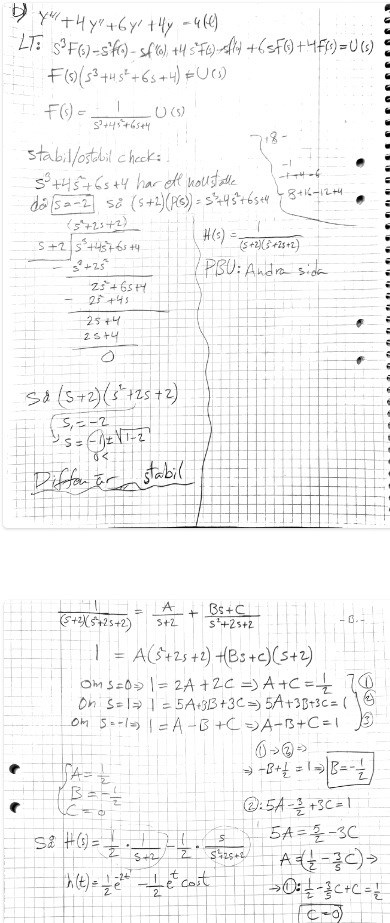 b) y''' + 4y'' + 6y' + 4y = u(t)
LT: s³F(s) - s²f(0) - sf'(0) + 4s²F(s) - sf(0) + 6sF(s) + 4F(s) = U(s)
F(s)(s³+4s²+6s+4) = U(s)
F(s) = 1/(s³+4s²+6s+4) U(s)
stabil/ostabil check:
s³+4s²+6s+4 har ett nollställe
då s=-2 så (s+2)(P(s)) = s³+4s²+6s+4
-8
-1
-1+4-6
-8+16-12+4
(s²+2s+2)
s+2 | s³+4s²+6s+4
- s³+2s²
2s²+6s+4
- 2s²+4s
2s+4
2s+4
0
H(s) = 1/((s+2)(s²+2s+2))
PBU: Andra sida
så (s+2)(s²+2s+2)
s₁ = -2
s = -1 ± √1-2
0<
Diffen är stabil
1/((s+2)(s²+2s+2)) = A/(s+2) + (Bs+C)/(s²+2s+2)
1 = A(s²+2s+2) + (Bs+C)(s+2)
Om s=0 ⇒ 1 = 2A + 2C ⇒ A+C = 1/2 ①
Om s=1 ⇒ 1 = 5A+3B+3C ⇒ 5A+3B+3C = 1 ②
Om s=-1 ⇒ 1 = A-B+C ⇒ A-B+C = 1 ③
①→③ ⇒
⇒ -B+1/2 = 1 ⇒ B = -1/2
A = 1/2
B = -1/2
C = 0
②: 5A - 3/2 + 3C = 1
5A = 5/2 - 3C
A = (1/2 - 3/5 C) ⇒
→ ①: 1/2 - 3/5 C + C = 1/2
C = 0
Så H(s) = 1/2 · 1/(s+2) - 1/2 · s/(s²+2s+2)
h(t) = 1/2 e^-2t - 1/2 e^t cos t